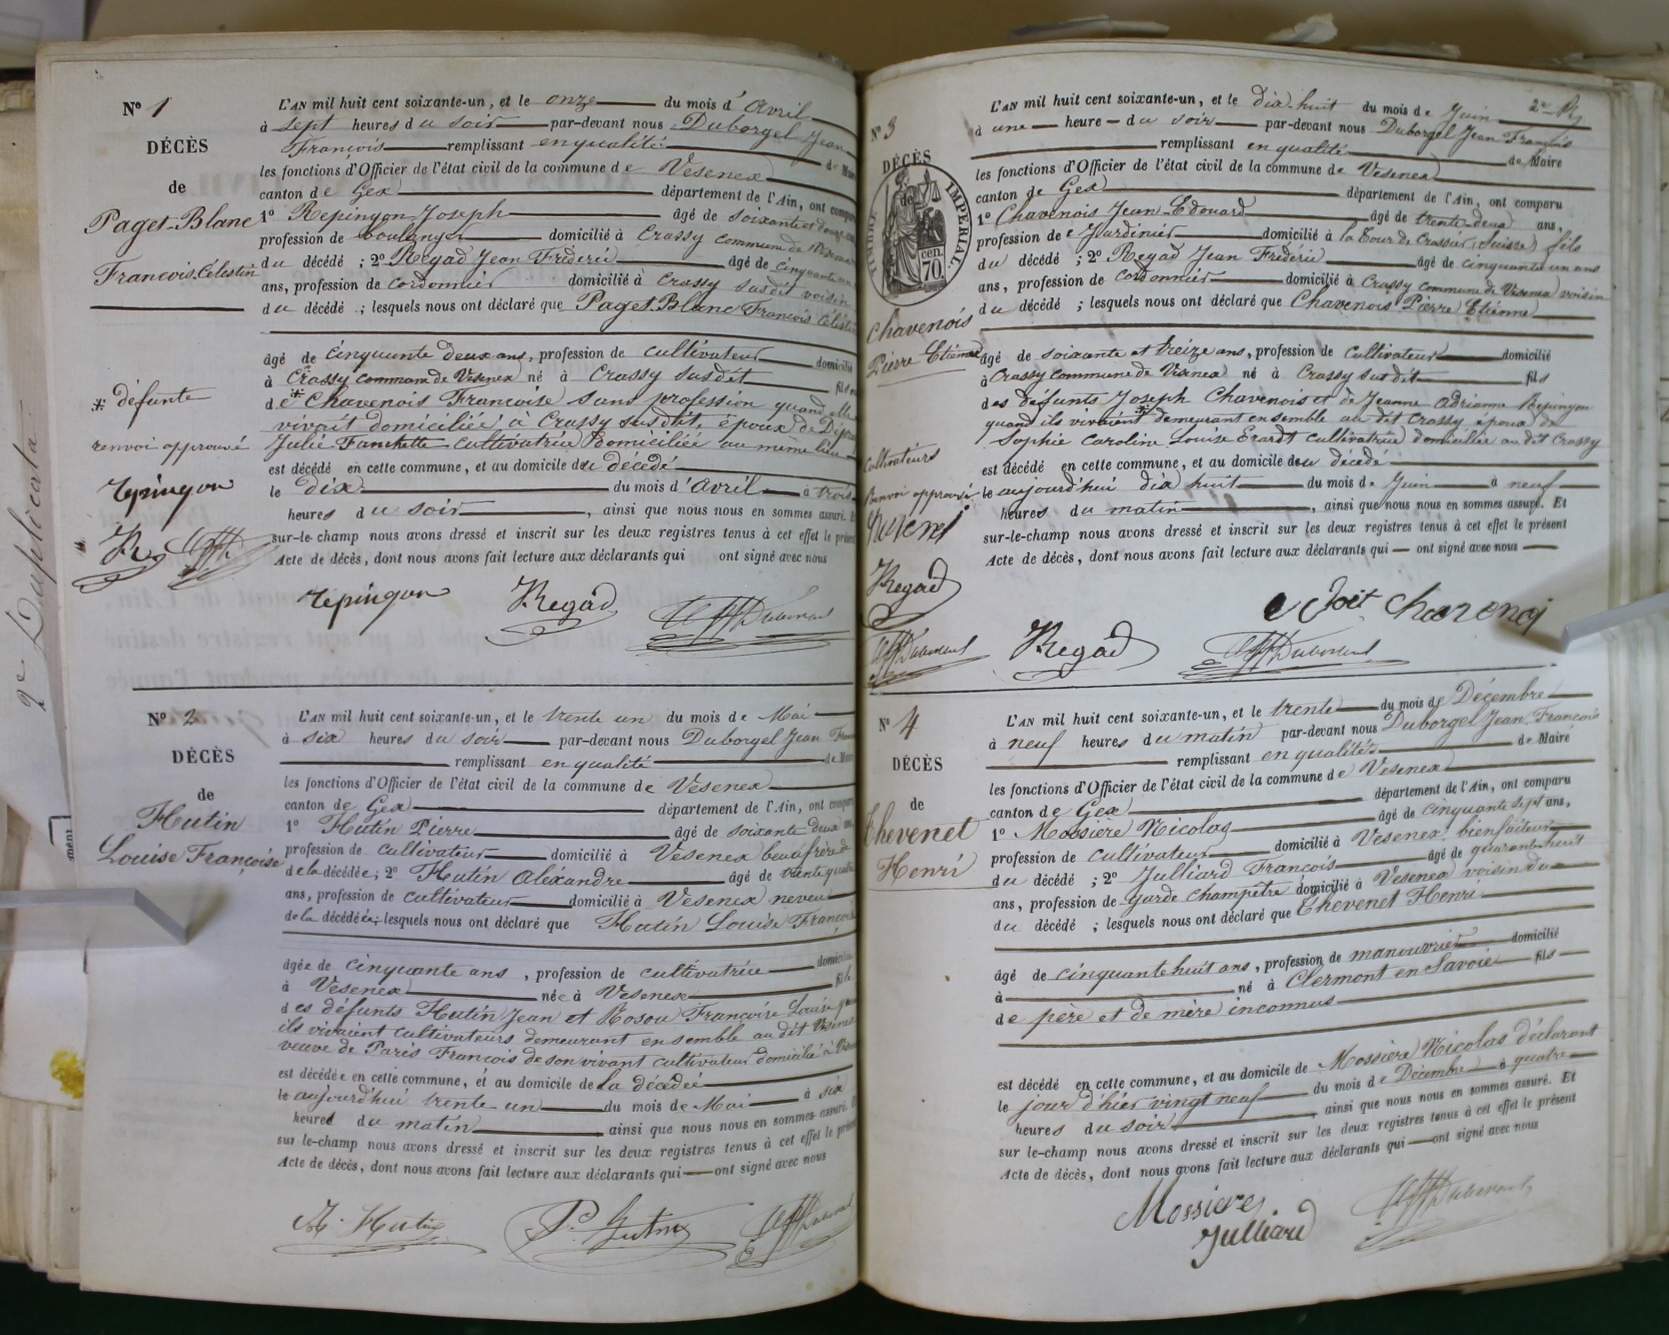 2e Duplicata
N° 1
DÉCÈS
de
Paget-Blanc
François Célestin
* défunte
renvoi approuvé
repingon
L'AN mil huit cent soixante-un, et le onze du mois d'Avril
à sept heures du soir par-devant nous Duborgel Jean
François remplissant en qualité de
les fonctions d'Officier de l'état civil de la commune de Vesenex
canton de Gex département de l'Ain, ont
1° Repingon Joseph âgé de soixante et
profession de boulanger domicilié à Crassy commune de
du décédé ; 2° Regad Jean Fréderic âgé de cinquante
ans, profession de cordonnier domicilié à Crassy susdit voisin
du décédé ; lesquels nous ont déclaré que Paget-Blanc François Célestin
âgé de cinquante deux ans, profession de cultivateur domicilié
à Crassy commune de Vesenex né à Crassy susdit fils
de * Chavenois Françoise sans profession quand elle
vivait domiciliée à Crassy susdit, époux de
Julie Fanchette cultivatrice domiciliée au même lieu
est décédé en cette commune, et au domicile du décédé
le dix du mois d'Avril à trois
heures du soir, ainsi que nous nous en sommes assuré. Et
sur-le-champ nous avons dressé et inscrit sur les deux registres tenus à cet effet le présent
Acte de décès, dont nous avons fait lecture aux déclarants qui ont signé avec nous
repingon Regad
N° 2
DÉCÈS
de
Hutin
Louise Françoise
L'AN mil huit cent soixante-un, et le trente un du mois de Mai
à six heures du soir par-devant nous Duborgel Jean
remplissant en qualité de
les fonctions d'Officier de l'état civil de la commune de Vesenex
canton de Gex département de l'Ain, ont
1° Hutin Pierre âgé de soixante deux
profession de cultivateur domicilié à Vesenex beaufrère
de la décédée ; 2° Hutin Aléxandre âgé de trente quatre
ans, profession de cultivateur domicilié à Vesenex neveu
de la décédée ; lesquels nous ont déclaré que Hutin Louise Françoise
âgée de cinquante ans, profession de cultivatrice
à Vesenex née à Vesenex fille
des défunts Hutin Jean et Rosou Françoise Louise
ils vivaient cultivateurs demeurant ensemble au dit Vesenex
veuve de Paris François de son vivant cultivateur domicilié à
est décédée en cette commune, et au domicile de la décédée
le aujourd'hui trente un du mois de Mai à six
heures du matin ainsi que nous nous en sommes assuré. Et
sur le-champ nous avons dressé et inscrit sur les deux registres tenus à cet effet le présent
Acte de décès, dont nous avons fait lecture aux déclarants qui ont signé avec nous
A. Hutin
N° 3
DÉCÈS
de
TIMBRE IMPÉRIAL
cen. 70.
Chavenois
Pierre Etienne
cultivateurs
Renvoi approuvé
Regad
L'AN mil huit cent soixante-un, et le dix huit du mois de Juin
à une heure du soir par-devant nous Duborgel Jean François
remplissant en qualité de Maire
les fonctions d'Officier de l'état civil de la commune de Vesenex
canton de Gex département de l'Ain, ont comparu
1° Chavenois Jean Edouard âgé de trente deux ans,
profession de Jardinier domicilié à la Tour de Crassier (Suisse) fils
du décédé ; 2° Regad Jean Fréderic âgé de cinquante un ans
ans, profession de cordonnier domicilié à Crassy commune de Vesenex voisin
du décédé ; lesquels nous ont déclaré que Chavenois Pierre Etienne
âgé de soixante et treize ans, profession de Cultivateur domicilié
à Crassy commune de Vesenex né à Crassy susdit fils
des défunts Joseph Chavenois et de Jeanne Adrianne Repingon
quand ils vivaient * demeurant ensemble au dit Crassy époux de
Sophie Caroline Louise Erardt cultivatrice domiciliée au dit Crassy
est décédé en cette commune, et au domicile du décédé
le aujourd'hui dix huit du mois de Juin à neuf
heures du matin, ainsi que nous nous en sommes assuré. Et
sur-le-champ nous avons dressé et inscrit sur les deux registres tenus à cet effet le présent
Acte de décès, dont nous avons fait lecture aux déclarants qui ont signé avec nous
Regad
N° 4
DÉCÈS
de
Thevenet
Henri
L'AN mil huit cent soixante-un, et le trente du mois de Décembre
à neuf heures du matin par-devant nous Duborgel Jean François
remplissant en qualité de Maire
les fonctions d'Officier de l'état civil de la commune de Vesenex
canton de Gex département de l'Ain, ont comparu
1° Mossiere Nicolas âgé de cinquante sept ans,
profession de cultivateur domicilié à Vesenex bienfaiteur
du décédé ; 2° Julliard François âgé de quarante huit
ans, profession de garde champêtre domicilié à Vesenex voisin du
du décédé ; lesquels nous ont déclaré que Thevenet Henri
âgé de cinquante huit ans, profession de manouvrier domicilié
à né à Clermont en Savoie fils
de père et de mère inconnus
est décédé en cette commune, et au domicile de Mossiere Nicolas déclarant
le jour d'hier vingt neuf du mois de Décembre à quatre
heures du soir, ainsi que nous nous en sommes assuré. Et
sur le-champ nous avons dressé et inscrit sur les deux registres tenus à cet effet le présent
Acte de décès, dont nous avons fait lecture aux déclarants qui ont signé avec nous
Mossiere
Julliard